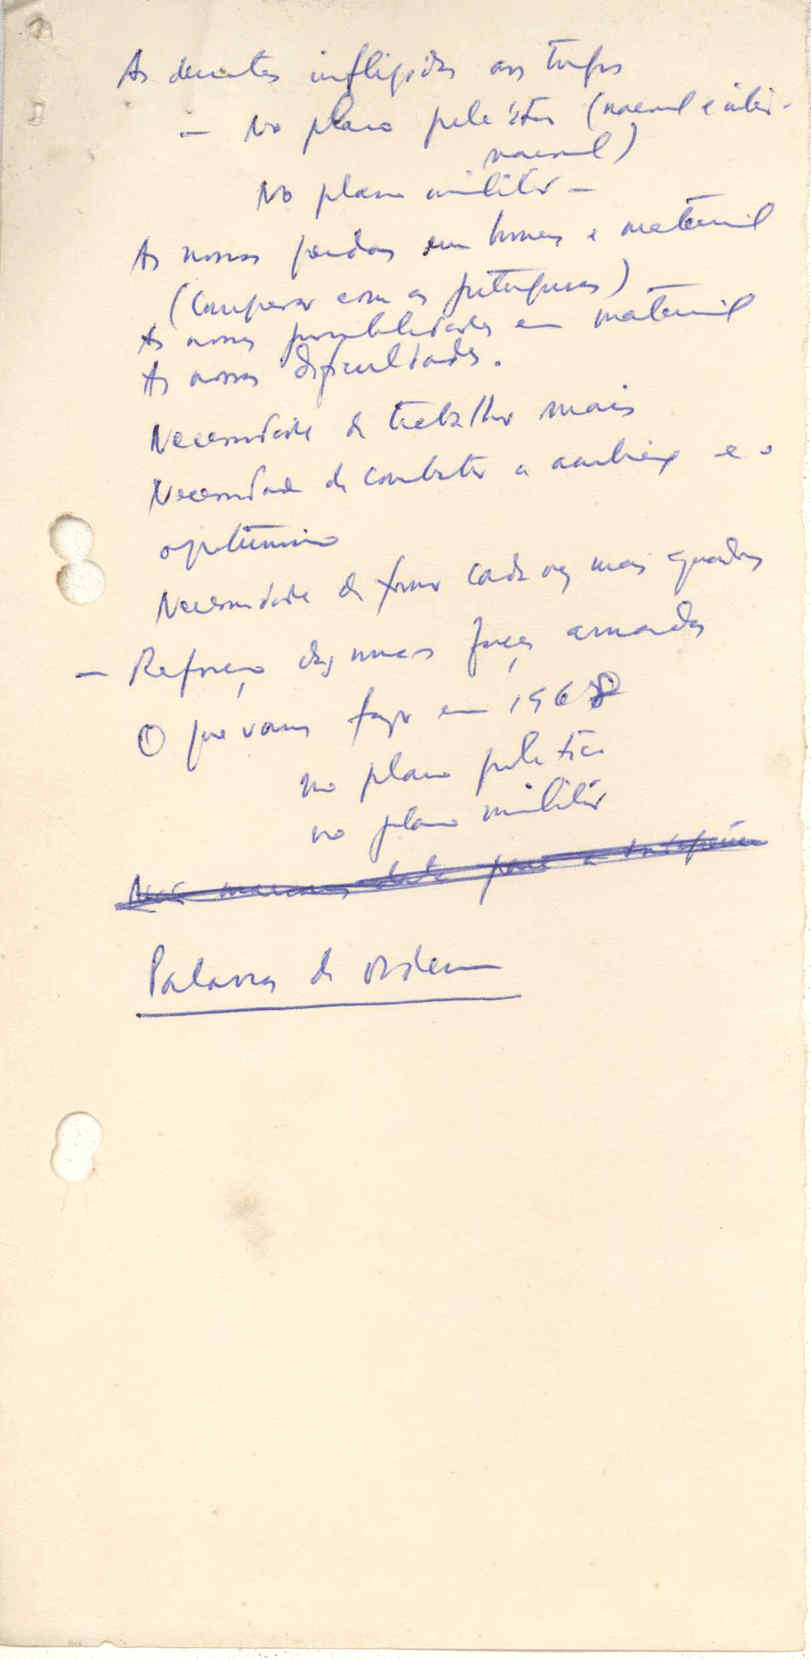 As derrotas infligidas aos tugas
- No plano político (nacional e inter-
nacional)
No plano militar -
As nossas perdas em homens e material
(Comparar com os portugueses)
As nossas possibilidades em material
As nossas dificuldades.
Necessidade de trabalhar mais
Necessidade de combater a e o
optimismo
Necessidade de formar cada vez mais quadros
- Reforço das nossas forças armadas
O que vamos fazer em 1968
no plano político
no plano militar
Palavras de ordem